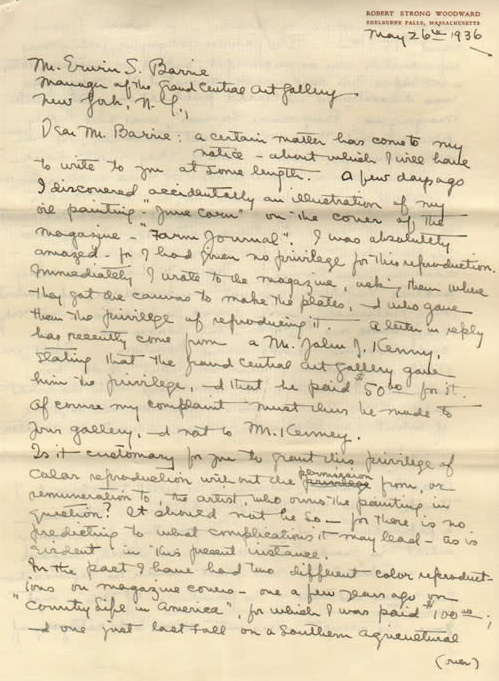 ROBERT STRONG WOODWARD
SHELBURNE FALLS, MASSACHUSETTS
May 26th 1936
Mr. Erwin S. Barrie
Manager of the Grand Central Art Gallery
New York, N.Y.,
Dear Mr. Barrie: a certain matter has come to my
notice - about which I will have
to write to you at some length. A few days ago
I discovered accidentally an illustration of my
oil painting - "June Corn" on the cover of the
magazine - "Farm Journal". I was absolutely
amazed - for I had given no privilege for this reproduction.
Immediately I wrote to the magazine, asking them where
they got the canvas to make the plates, & who gave
them the privilege of reproducing it. A letter in reply
has recently come from a Mr. John J. Kenny,
stating that the Grand Central Art Gallery gave
him the privilege, & that he paid $50.00 for it.
Of course my complaint must thus be made to
your gallery, & not to Mr. Kenney.
Is it customary for you to grant this privilege of
color reproduction without the permission privilege from, or
remuneration to, the artist who owns the painting in
question? It should not be so - for there is no
predicting to what complications it may lead - as is
evident in this present instance.
In the past I have had two different color reproduct-
ions on magazine covers - one a few years ago on
"Country Life in America", for which I was paid $100.00;
& one just last fall on a Southern agricultural
(over)